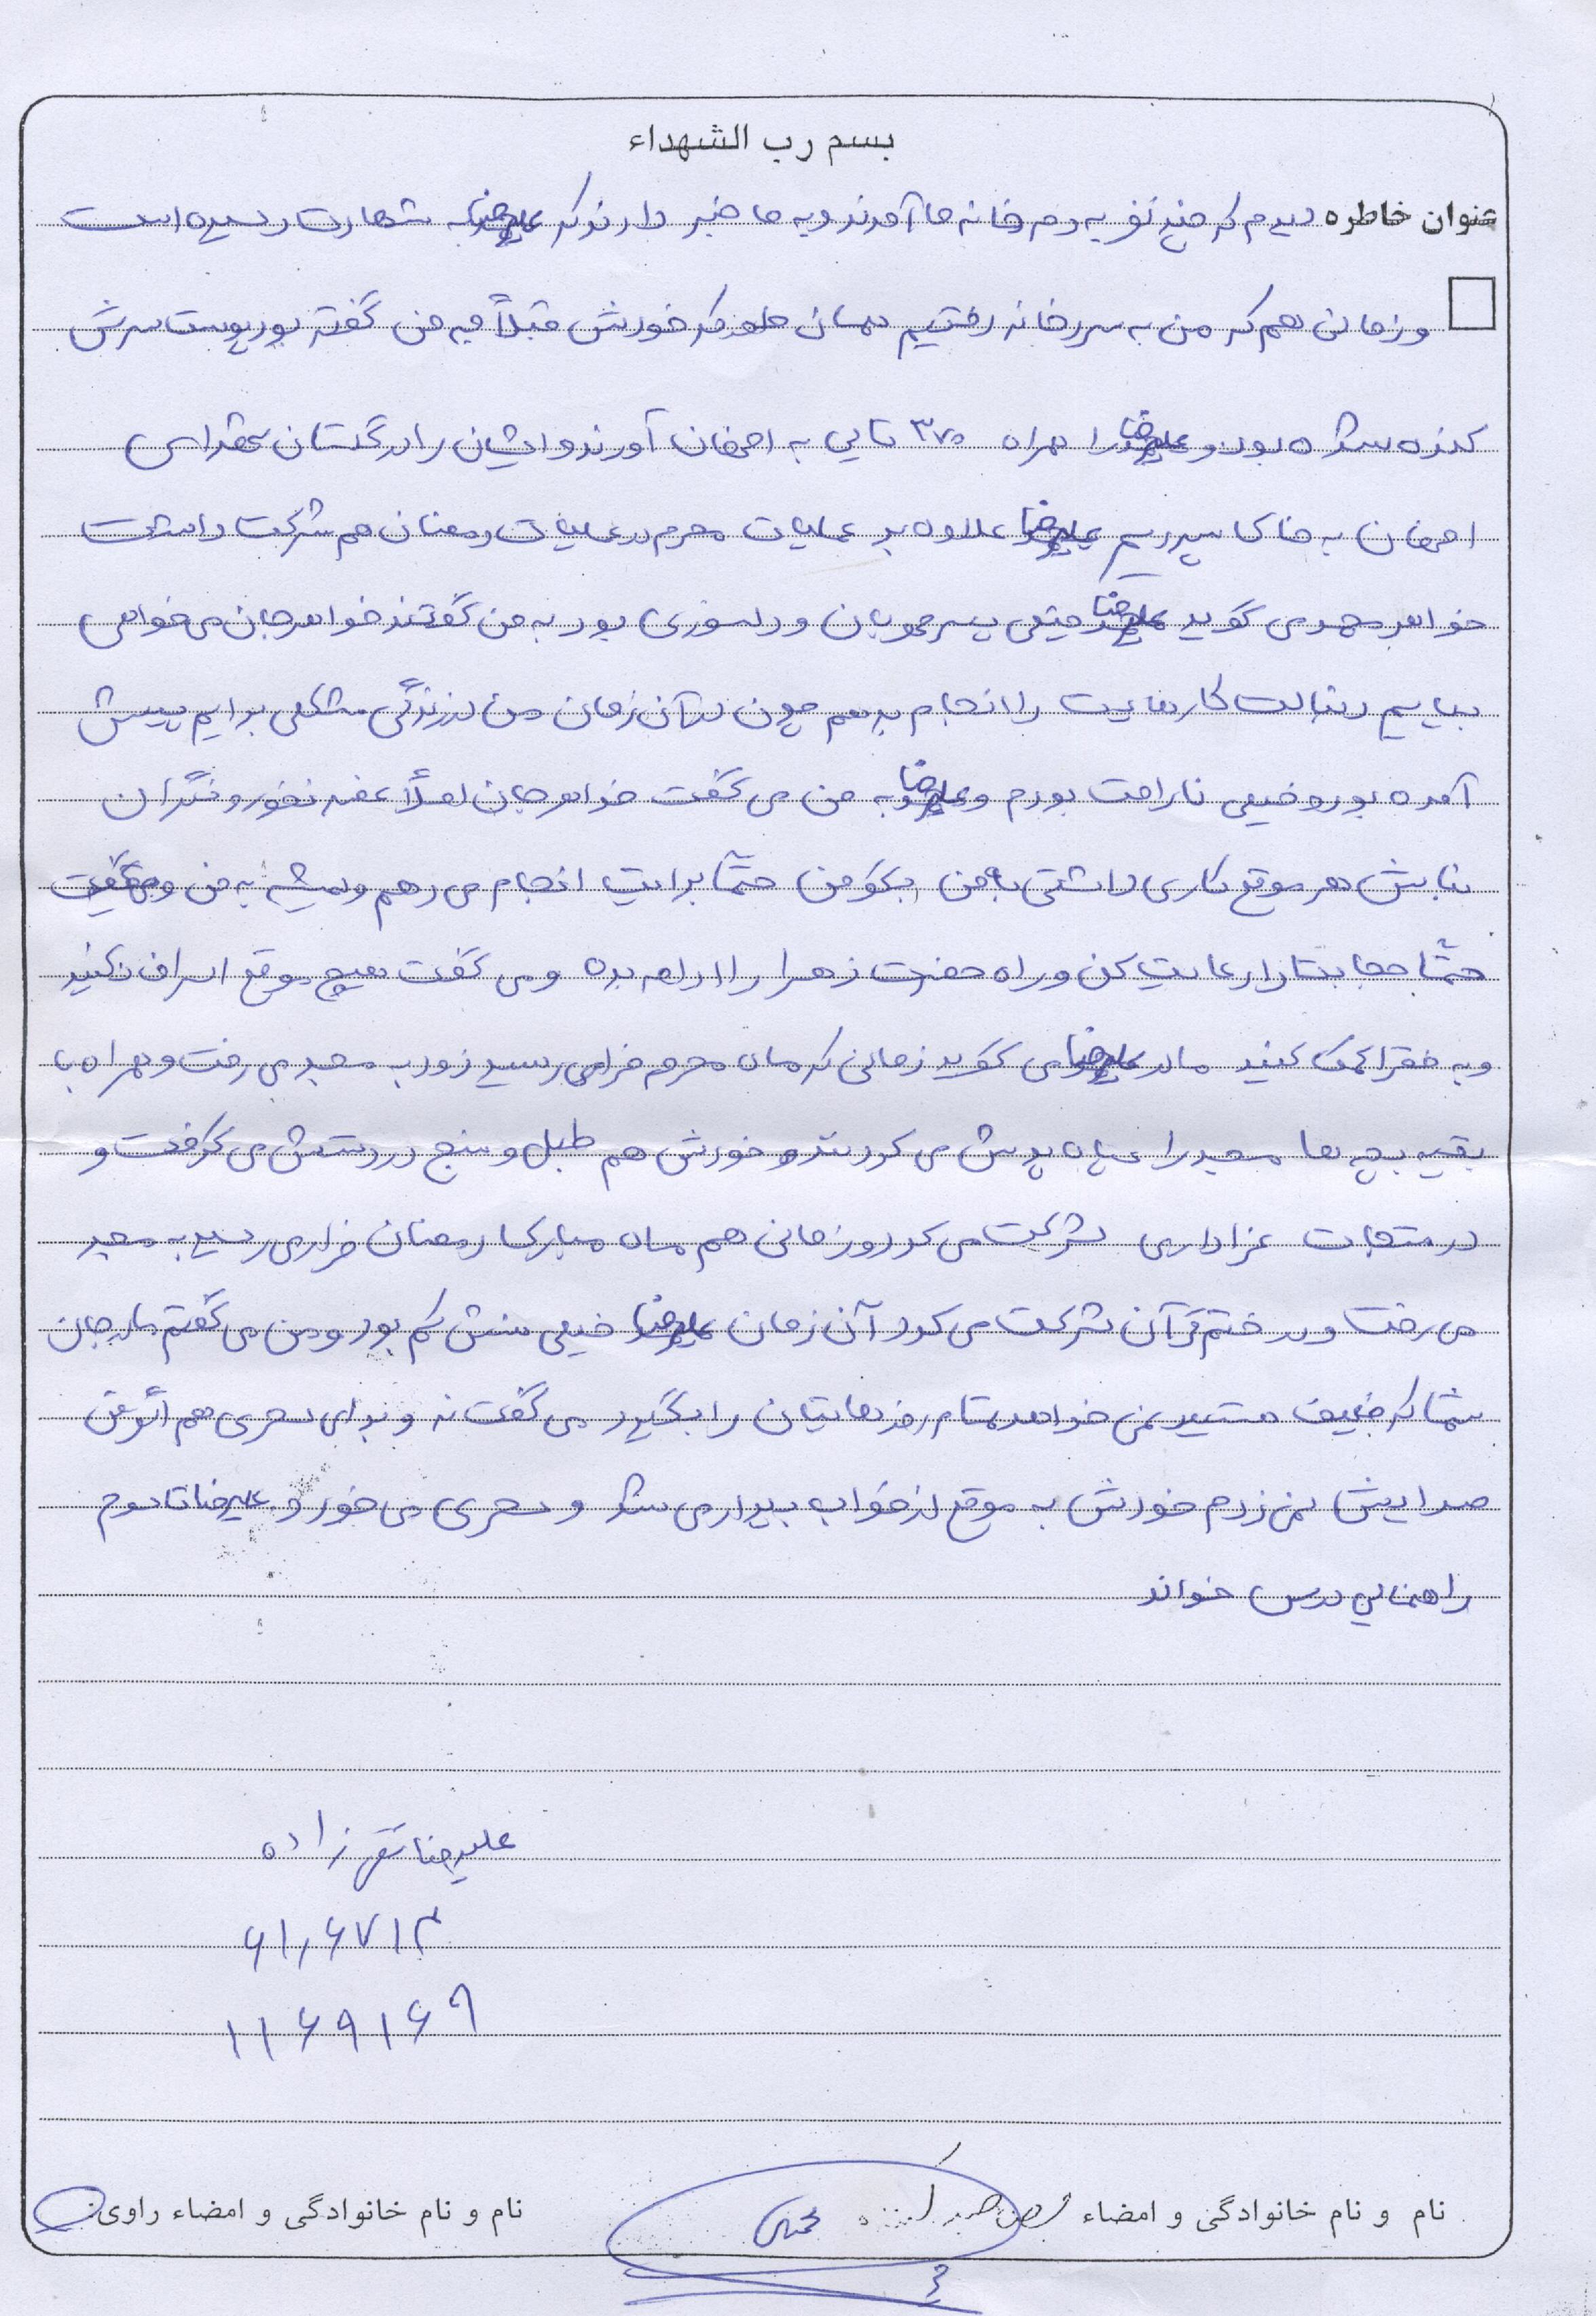 بسم رب الشهداء
عنوان خاطره دیدم که چند نفر به درم خانه ما آمدند و به ما خبر دادند که علیرضا به شهادت رسیده است
و زمانی هم که من به سردخانه رفتیم همان طور که خودش قبلاً به من گفته بود پوست سرش
کنده شده بود و علیرضا را همراه ۳۷۰ تایی به اصفهان آورند و ایشان را در گلستان شهدای
اصفهان به خاک سپردیم علیرضا علاوه بر عملیات محرم در عملیات رمضان هم شرکت داشت
خواهر شهید می گوید علیرضا خیلی پسر مهربان و دلسوزی بود به من گفتند خواهر جان می خواهی
بیایم دنبالت کارهایت را انجام بدهم چون در آن زمان من در زندگی مشکلی برایم پیش
آمده بود و خیلی ناراحت بودم و علیرضا به من می گفت خواهر جان اصلاً غصه نخور و نگران
نباش هر موقع کاری داشتی به من بگو من حتماً برایت انجام می دهم و همیشه به من می گفت
حتماً حجابت را رعایت کن و راه حضرت زهرا را ادامه بده و می گفت هیچ موقع اسراف نکنید
و به فقرا کمک کنید مادر علیرضا می گوید زمانی که ماه محرم فرا می رسید زود به مسجد می رفت و همراه با
بقیه بچه ها مسجد را سیاه پوش می کردند و خودش هم طبل و سنج در دستش می گرفت و
در دستجات عزاداری شرکت می کرد و زمانی هم ماه مبارک رمضان فرا می رسید به مسجد
می رفت و در ختم قرآن شرکت می کرد آن زمان علیرضا خیلی سنش کم بود و من می گفتم مادر جان
شما که ضعیف هستید نمی خواهد تمام روزهایتان را بگیرد می گفت نه و برای سحری هم اگر من
صدایش نمی زدم خودش به موقع از خواب بیدار می شد و سحری می خورد و علیرضا تا دوم
راهنمایی درس خواند
علیرضا تقی زاده
۶۱٫۶۷۱۳
۱۱۶۹۱۶۹
نام و نام خانوادگی و امضاء
نام و نام خانوادگی و امضاء راوی